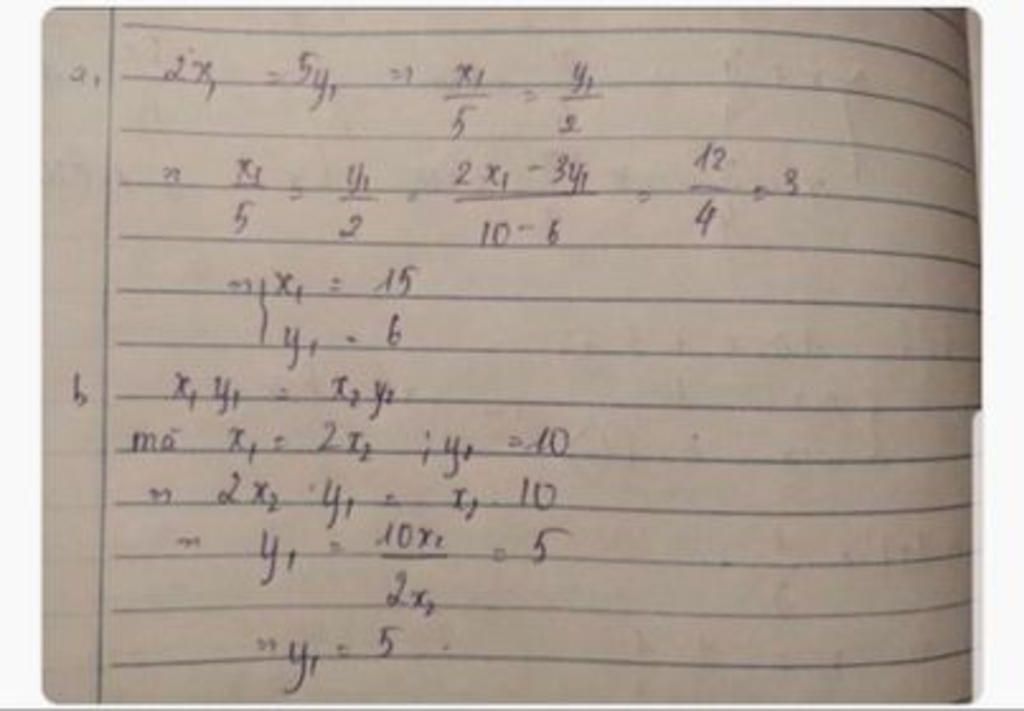 a, 2x₁ = 5y₁ => x₁/5 = y₁/2
=> x₁/5 = y₁/2 = (2x₁ - 3y₁)/(10 - 6) = 12/4 = 3
=> { x₁ = 15
y₁ = 6
b x₁ y₁ = x₂ y₂
mà x₁ = 2x₂ ; y₂ = 10
=> 2x₂ . y₁ = x₂ . 10
=> y₁ = 10x₂/2x₂ = 5
=> y₁ = 5